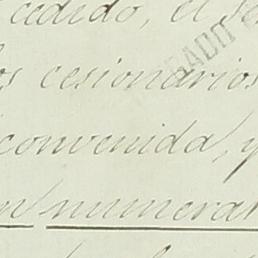 cedido, el se
os cesionarios
convenida, y
n numerar